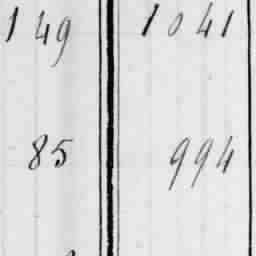 149 1041
85 994